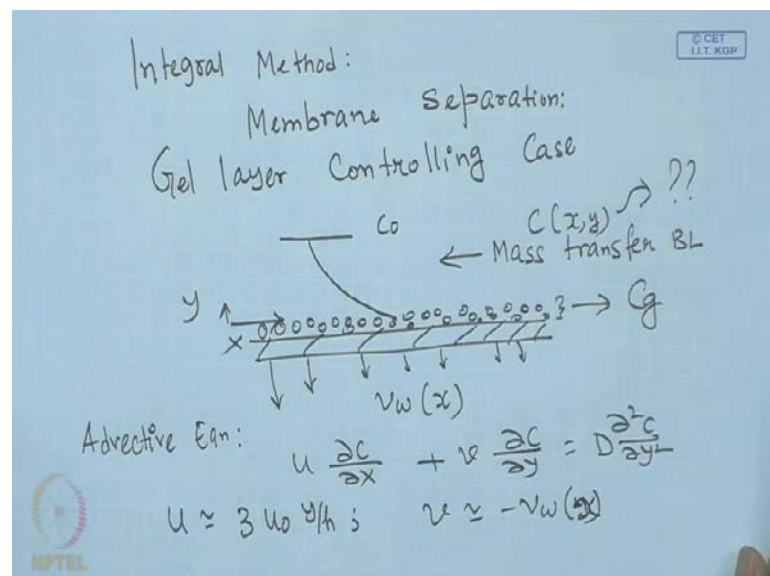 © CET
I.I.T. KGP
Integral Method:
Membrane Separation:
Gel layer Controlling Case
C(x,y) → ??
C₀
← Mass transfer BL
y
x
→ Cg
νw(x)
Advective Eqn: u ∂C/∂x + v ∂C/∂y = D ∂²C/∂y²
u ≃ 3 u₀ y/h ; v ≃ -νw(x)
NPTEL